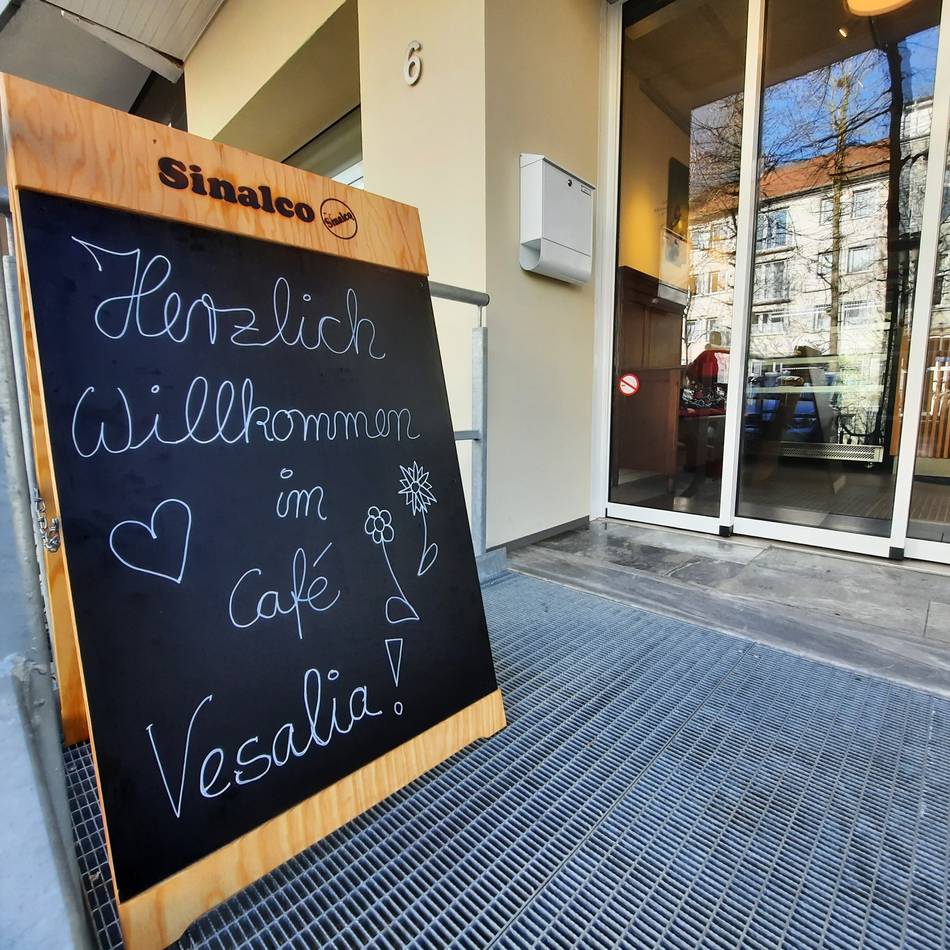 6
Sinalco Sinalco
Herzlich
Willkommen
im
Café
Vesalia!